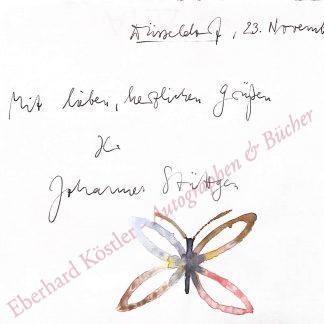 Düsseldorf, 23. Novemb
Mit lieben, herzlichen Grüßen
Ihr
Johannes Stüttgen
Eberhard Köstler Autographen & Bücher